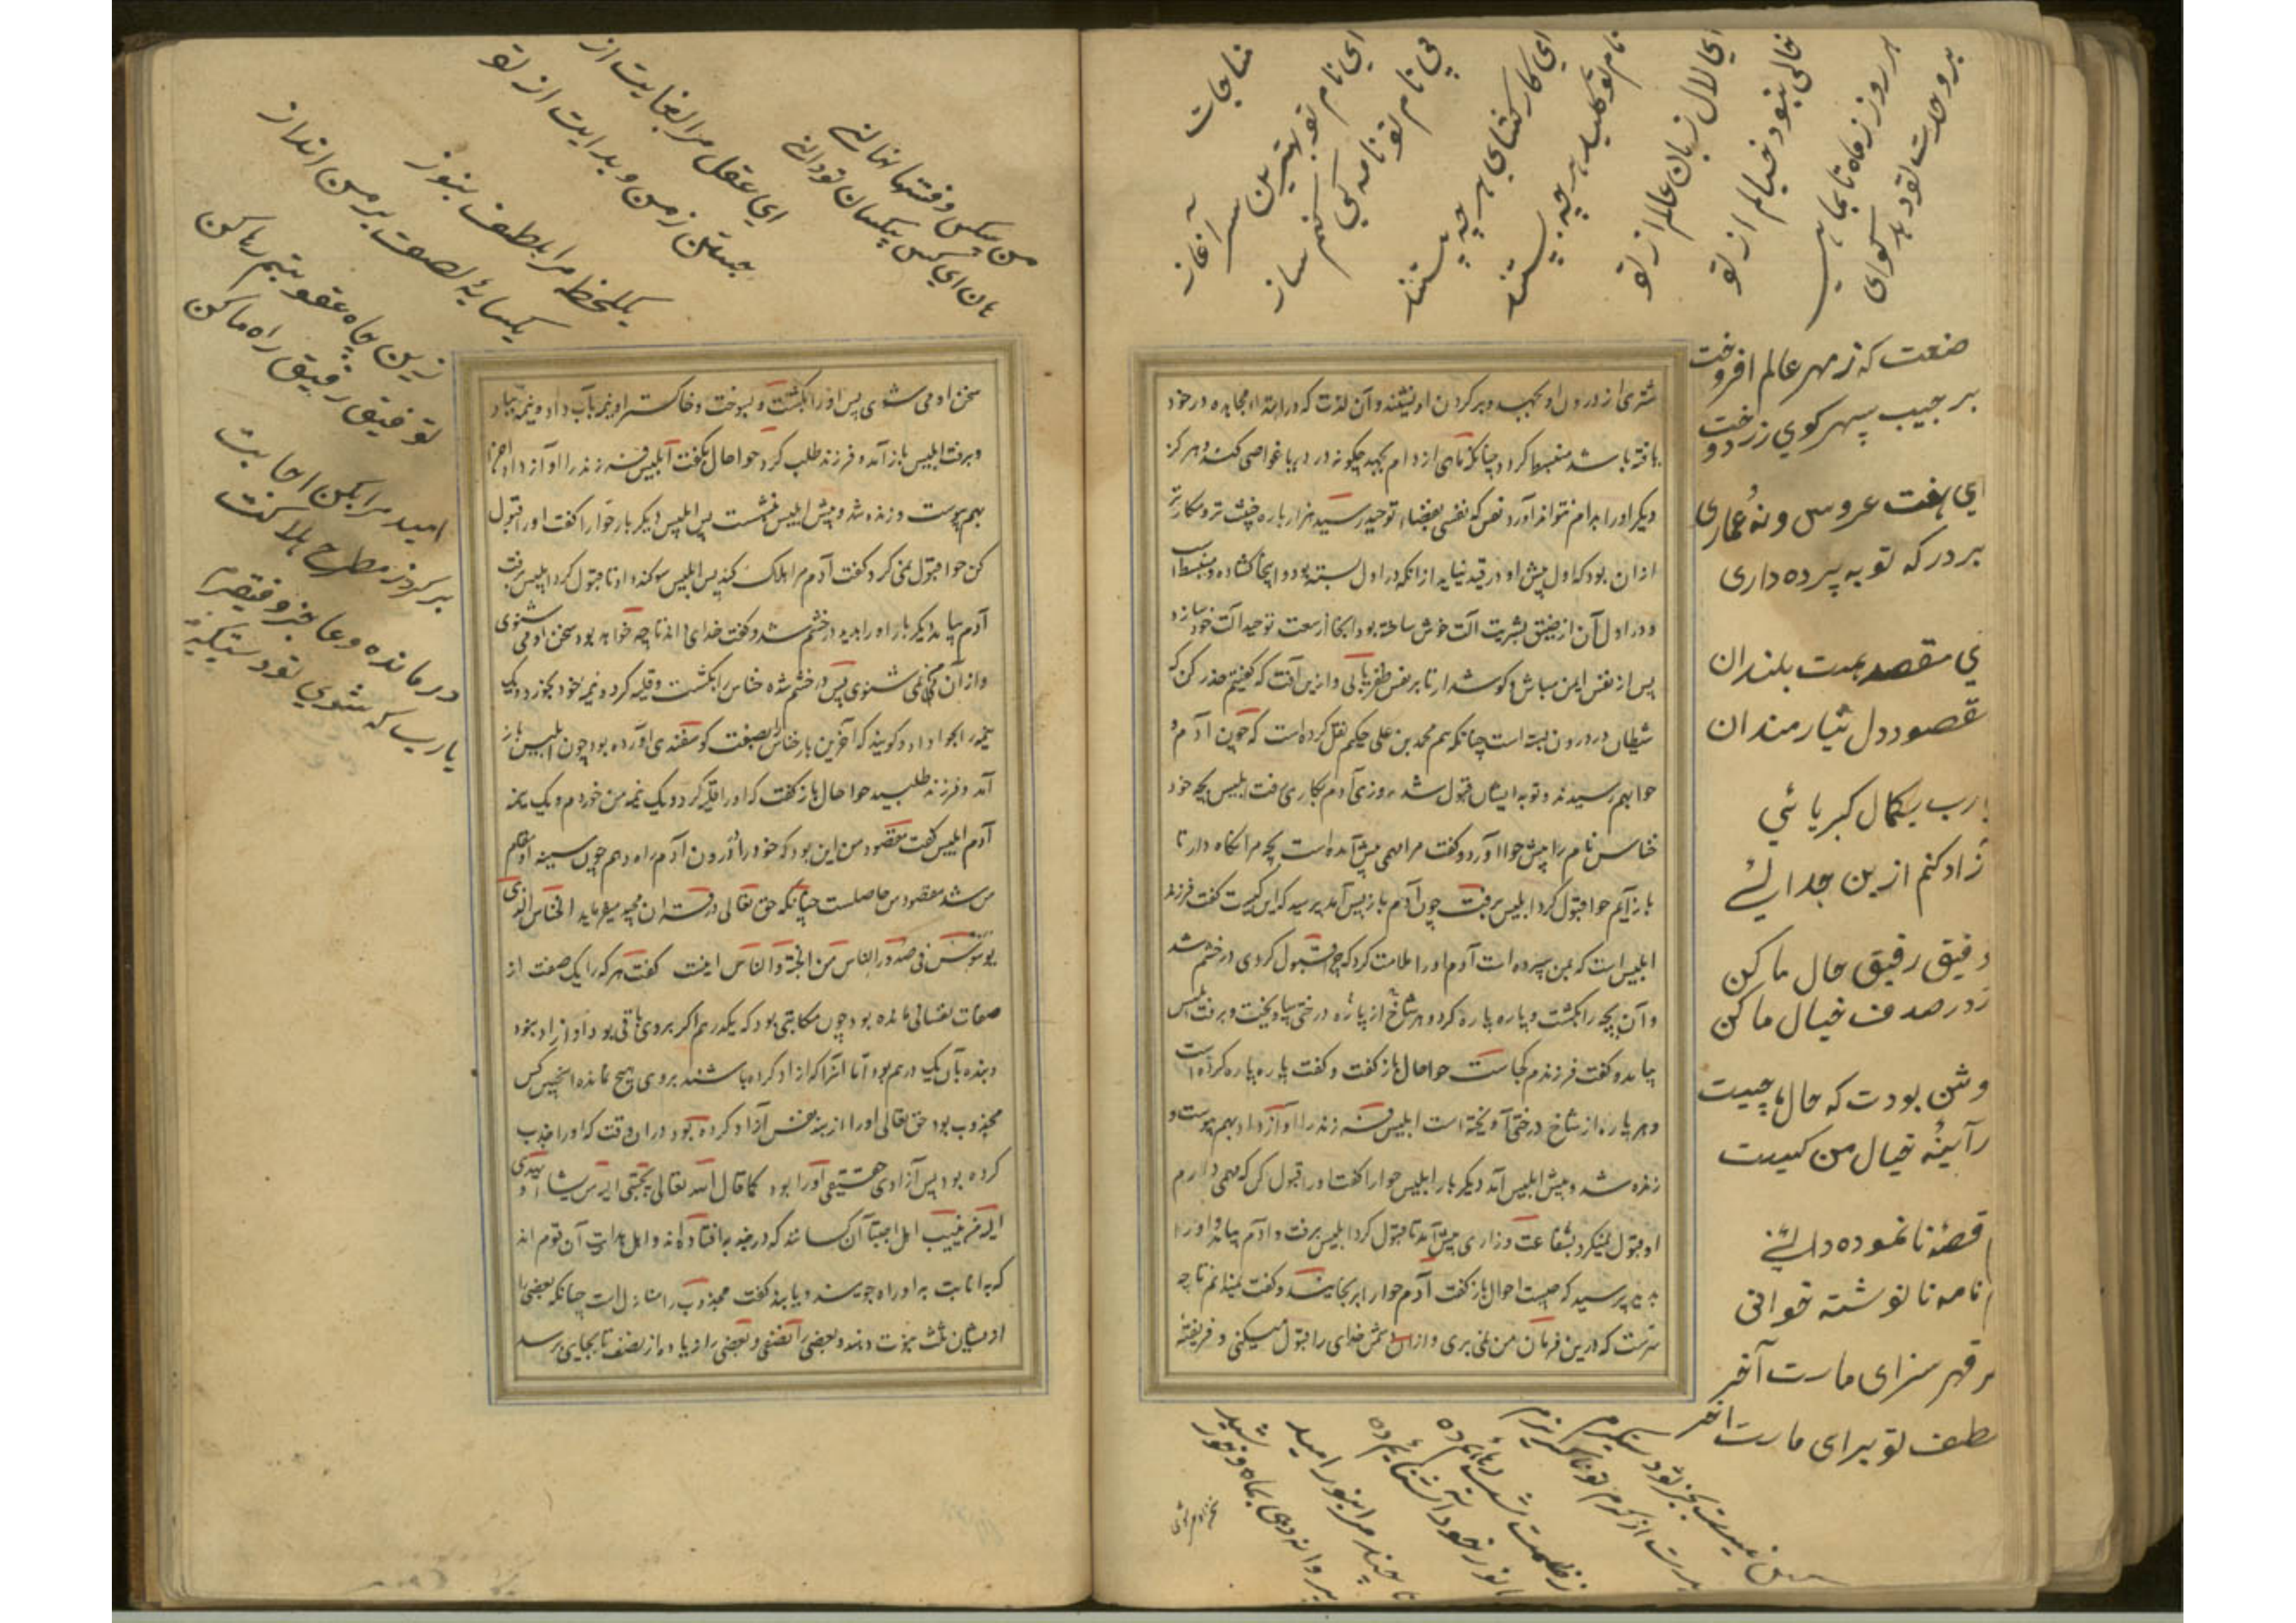 مناجات
ای نام تو بهترین سرآغاز
بی نام تو نامه کی کنم ساز
ای کارکشای هر چه هستند
نام تو کلید هر چه بستند
ای لال زبان عالم از تو
خالی نبود خیالم از تو
هر روز ز ماه تا بماهی
صنعت که ز مهر عالم افروخت
بر جیب سپهر کوی زر دوخت
ای هفت عروس و نه عماری
بر درکه تو به پرده داری
ی مقصد همت بلندان
قصود دل نیازمندان
ارب بکمال کبریائی
زاد کنم ازین جدائی
فیق رفیق حال ما کن
در صدف خیال ما کن
وشن بودت که حال ما چیست
رآیینه خیال من کیست
قصه نا نموده دانی
نامه نا نوشته خوانی
ر قهر سزای ماست آخر
لطف تو برای ماست آخر
تا چند مرا بنور امید
پروانه دهی بماه و خورشید
شتری از درون او بجهد و بر کردن او نشیند و آن لذت که در ابتدا مجاهده در خود
یافته باشد منبسط کردد چنانکه ماهی از دام بجهد چکونه در دریا غواصی کند و هرکز
دیکر او را بدام نتواند آورد نفس که نفسی بفضاء توحید رسید هزار باره خبیث تر و مکار تر
از ان بود که اول پیش او در قید نیاید از انکه در اول بسته بود و اینجا کشاده و منبسط است
و در اول آن از ضیق بشریت آلت خویش ساخته بود اینجا از سعت توحید آلت خود سازد
پس از نفس ایمن مباش و کوش دار تا بر نفس ظفر یابی و ازین آفت که کفتیم حذر کن که
شیطان در درون بسته است چنانکه هم محمد بن علی حکیم نقل کرده است که چون آدم و
حوا بهم رسیدند و توبه ایشان قبول شد روزی آدم بکاری رفت ابلیس بچه خود
خناس نام را پیش حوا آورد و کفت مرا مهمی پیش آمده است بچه مرا نکاه دار تا
باز آیم حوا قبول کرد ابلیس برفت چون آدم باز پس آمد پرسید که این کیست کفت فرزند
ابلیس است که بمن سپرده است آدم او را ملامت کرد که چرا قبول کردی در خشم شد
و آن بچه را بکشت و پاره پاره کرد و هر شاخ از پاره درختی بیاویخت و برفت ابلیس
بیامد و کفت فرزندم کجاست حوا حال باز کفت و کفت پاره پاره کرده است
و هر پاره از شاخ درختی آویخته است ابلیس فرزند را آواز داد بهم پیوست و
زنده شد و پیش ابلیس آمد دیکر بار ابلیس حوا را کفت او را قبول کن که مهمی دارم
او قبول نمیکرد بشفاعت و زاری پیش آمد تا قبول کرد ابلیس برفت و آدم بیامد و او را
بدید پرسید که چیست احوال باز کفت آدم حوا را برنجانید و کفت نمیدانم تا چه
سرست که درین فرمان من نمی بری و از ان دشمن خدای را قبول میکنی و فریفته
من بیکس و رخنها نهانی
هان ای کس بیکسان تو دانی
ای عقل مرا کفایت از تو
جستن ز من و هدایت از تو
یکلحظه مرا بلطف بنواز
یکسایه لطف بر من انداز
زین چاه عقوبتم رها کن
توفیق رفیق راه ما کن
امید مرا بکن اجابت
درمانده و عاجز و فقیرم
یارب که شوی تو دستکیرم
سخن او می شنوی پس او را بکشت و بسوخت و خاکستر او نیمه بآب داد و نیمه بباد
و برفت ابلیس باز آمد و فرزند طلب کرد حوا حال بکفت ابلیس فرزند را آواز داد اجزا
بهم پیوست و زنده شد و پیش ابلیس بنشست پس ابلیس دیکر بار حوا را کفت او را قبول
کن حوا قبول نمی کرد کفت آدم مرا هلاک کند پس ابلیس سوکند داد تا قبول کرد ابلیس برفت
آدم بیامد دیکر بار او را بدید در خشم شد و کفت خدای داند تا چه خواهد بود سخن او می شنوی
و از آن من نمی شنوی پس در خشم شده خناس را بکشت و قلیه کرد و نیمه خود بخورد و یک
نیمه را بحوا داد و کویند که آخرین بار خناس را بصفت کوسفندی آورده بود چون ابلیس باز
آمد و فرزند طلبید حوا حال باز کفت که او را قلیه کرد و یک نیمه من خوردم و یک نیمه
آدم ابلیس کفت مقصود من این بود که خود را در درون آدم راه دهم چون سینه او مقام
من شد مقصود من حاصلست چنانکه حق تعالی در قران مجید میفرماید الخناس الذی
یوسوس فی صدور الناس من الجنة والناس اینست کفت هر که را یک صفت از
صفات نفسانی مانده بود چون مکاتبی بود که یکدرم اکر بروی باقی بود او آزاد نبود
و بنده بآن یک درم بود اما آنرا که آزاد کرده باشند بروی هیچ نمانده اینچنین کس
مجذوب بود حق تعالی او را از بند نفس آزاد کرده بود در ان وقت که او را جذب
کرده بود پس آزادی حقیقی او را بود کما قال الله تعالی یجتبی الیه من یشاء و یهدی
الیه من ینیب اهل اجتبا آن کسانند که در جذبه افتاده اند و اهل هدایت آن قوم اند
که به انابت به او راه جویند و یابند و کفت مجذوب را منازل است چنانکه بعضی را
از ایشان ثلث نبوت دهند و بعضی را نصفی و بعضی را زیاده از نصف تا بجایی برسد